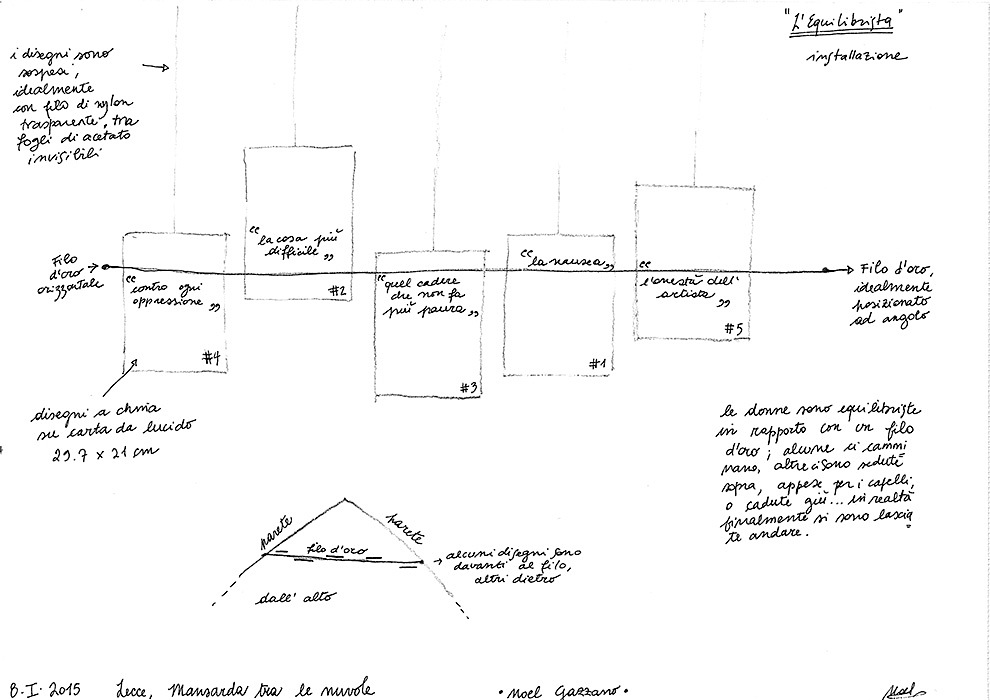 "L'Equilibrista"
installazione
i disegni sono
sospesi,
idealmente
con filo di nylon
trasparente, tra
fogli di acetato
invisibili
Filo
d'oro
orizzontale
"contro ogni
oppressione"
#4
"la cosa più
difficile"
#2
"quel cadere
che non fa
più paura"
#3
"la nausea"
#1
"l'onestà dell'
artista"
#5
Filo d'oro,
idealmente
posizionato
ad angolo
disegni a china
su carta da lucido
29.7 x 21 cm
le donne sono equilibriste
in rapporto con un filo
d'oro; alcune ci cammi
nano, altre ci sono sedute
sopra, appese per i capelli,
o cadute giù... in realtà
finalmente si sono lascia
te andare.
parete
parete
filo d'oro
alcuni disegni sono
davanti al filo,
altri dietro
dall'alto
8.I.2015 Lecce, Mansarda tra le nuvole
• Noel Gazzano •
Noel